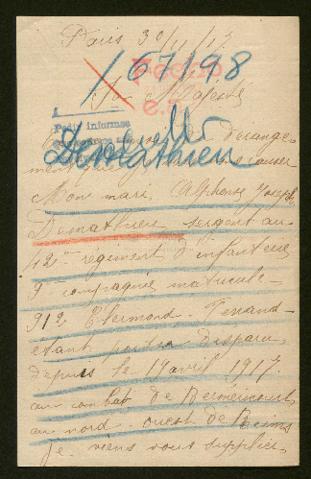 Paris 30/11/17
1/67198
Sa Majesté
Demathieu
dérange-
causer
Mon mari, Alphonse Joseph
Demathieu sergent au
42me régiment d'infanterie
9me compagnie matricule
912 Clermont-Ferrand
étant porté disparu
depuis le 19 avril 1917.
au combat de Berméricourt
au nord-ouest de Reims
Je viens vous supplier